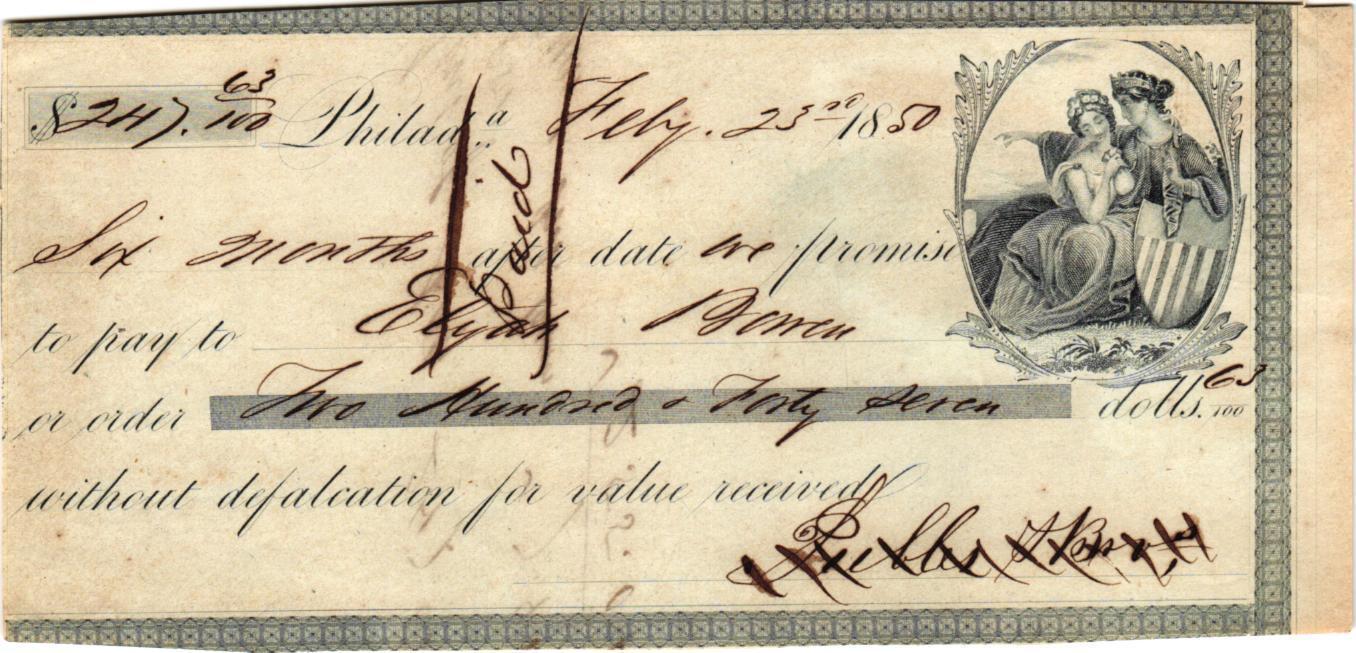 $247. 63/100 Philad.a Feby. 23rd 1850
Paid
Six months after date we promise
to pay to Elijah Bowen
or order Two Hundred & Forty Seven dolls. 63/100
without defalcation for value received
& Bro